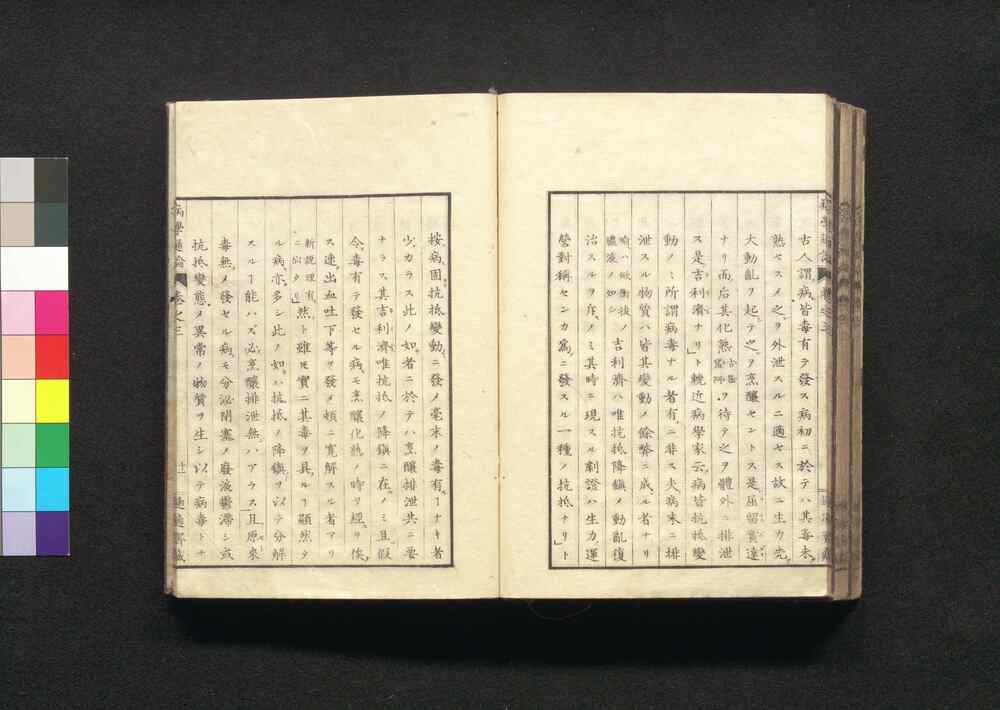 古人謂病皆毒有テ發ス病初ニ於テハ其毒未
熟セスメ之ヲ外泄スルニ適セス故ニ生力先
大動亂ヲ起テ之ヲ烹釀セントス
ナリ而后其化熟ヲ待テ之ヲ體外ニ排泄
ス是吉利濟ナリト輓近病學家云病皆抗抵變
動ノミ所謂病毒ナル者有ニ非ス夫病末ニ排
泄スル物質ハ皆其變動ノ餘弊ニ成ル者ナリ
膿液ノ如シ
吉利濟ハ唯抗抵降鎮メ動亂復
治スルヲ斥ノミ其時ニ現スル劇證ハ生力運
營對稱センカ爲ニ發スル一種ノ抗抵ナリト
按病固抗抵變動ニ發メ毫末ノ毒有ーナキ者
少カラス此ノ如者ニ於テハ烹釀排泄共ニ要
ナラス其吉利濟唯抗抵ノ降鎮ニ在ノミ且假
令毒有テ發セル病モ烹釀化熟ノ時ヲ經ヲ俟
ス速ニ出血吐下等ヲ發メ頓ニ寛解スル者アリ
新説理有
ニ似タリ
然ト雖𪜈實ニ其毒ヲ具ルー顯然タ
ル病亦多シ此ノ如ハ抗抵ノ降鎮ヲ以テ分解
スルー能ハズ必烹釀排泄無ハアラス且原來
毒無メ發セル病モ分泌閉塞メ廢液鬱滯シ或
抗抵變態メ異常ノ物質ヲ生シ以テ病毒トナ
病學通論
卷之三
十一